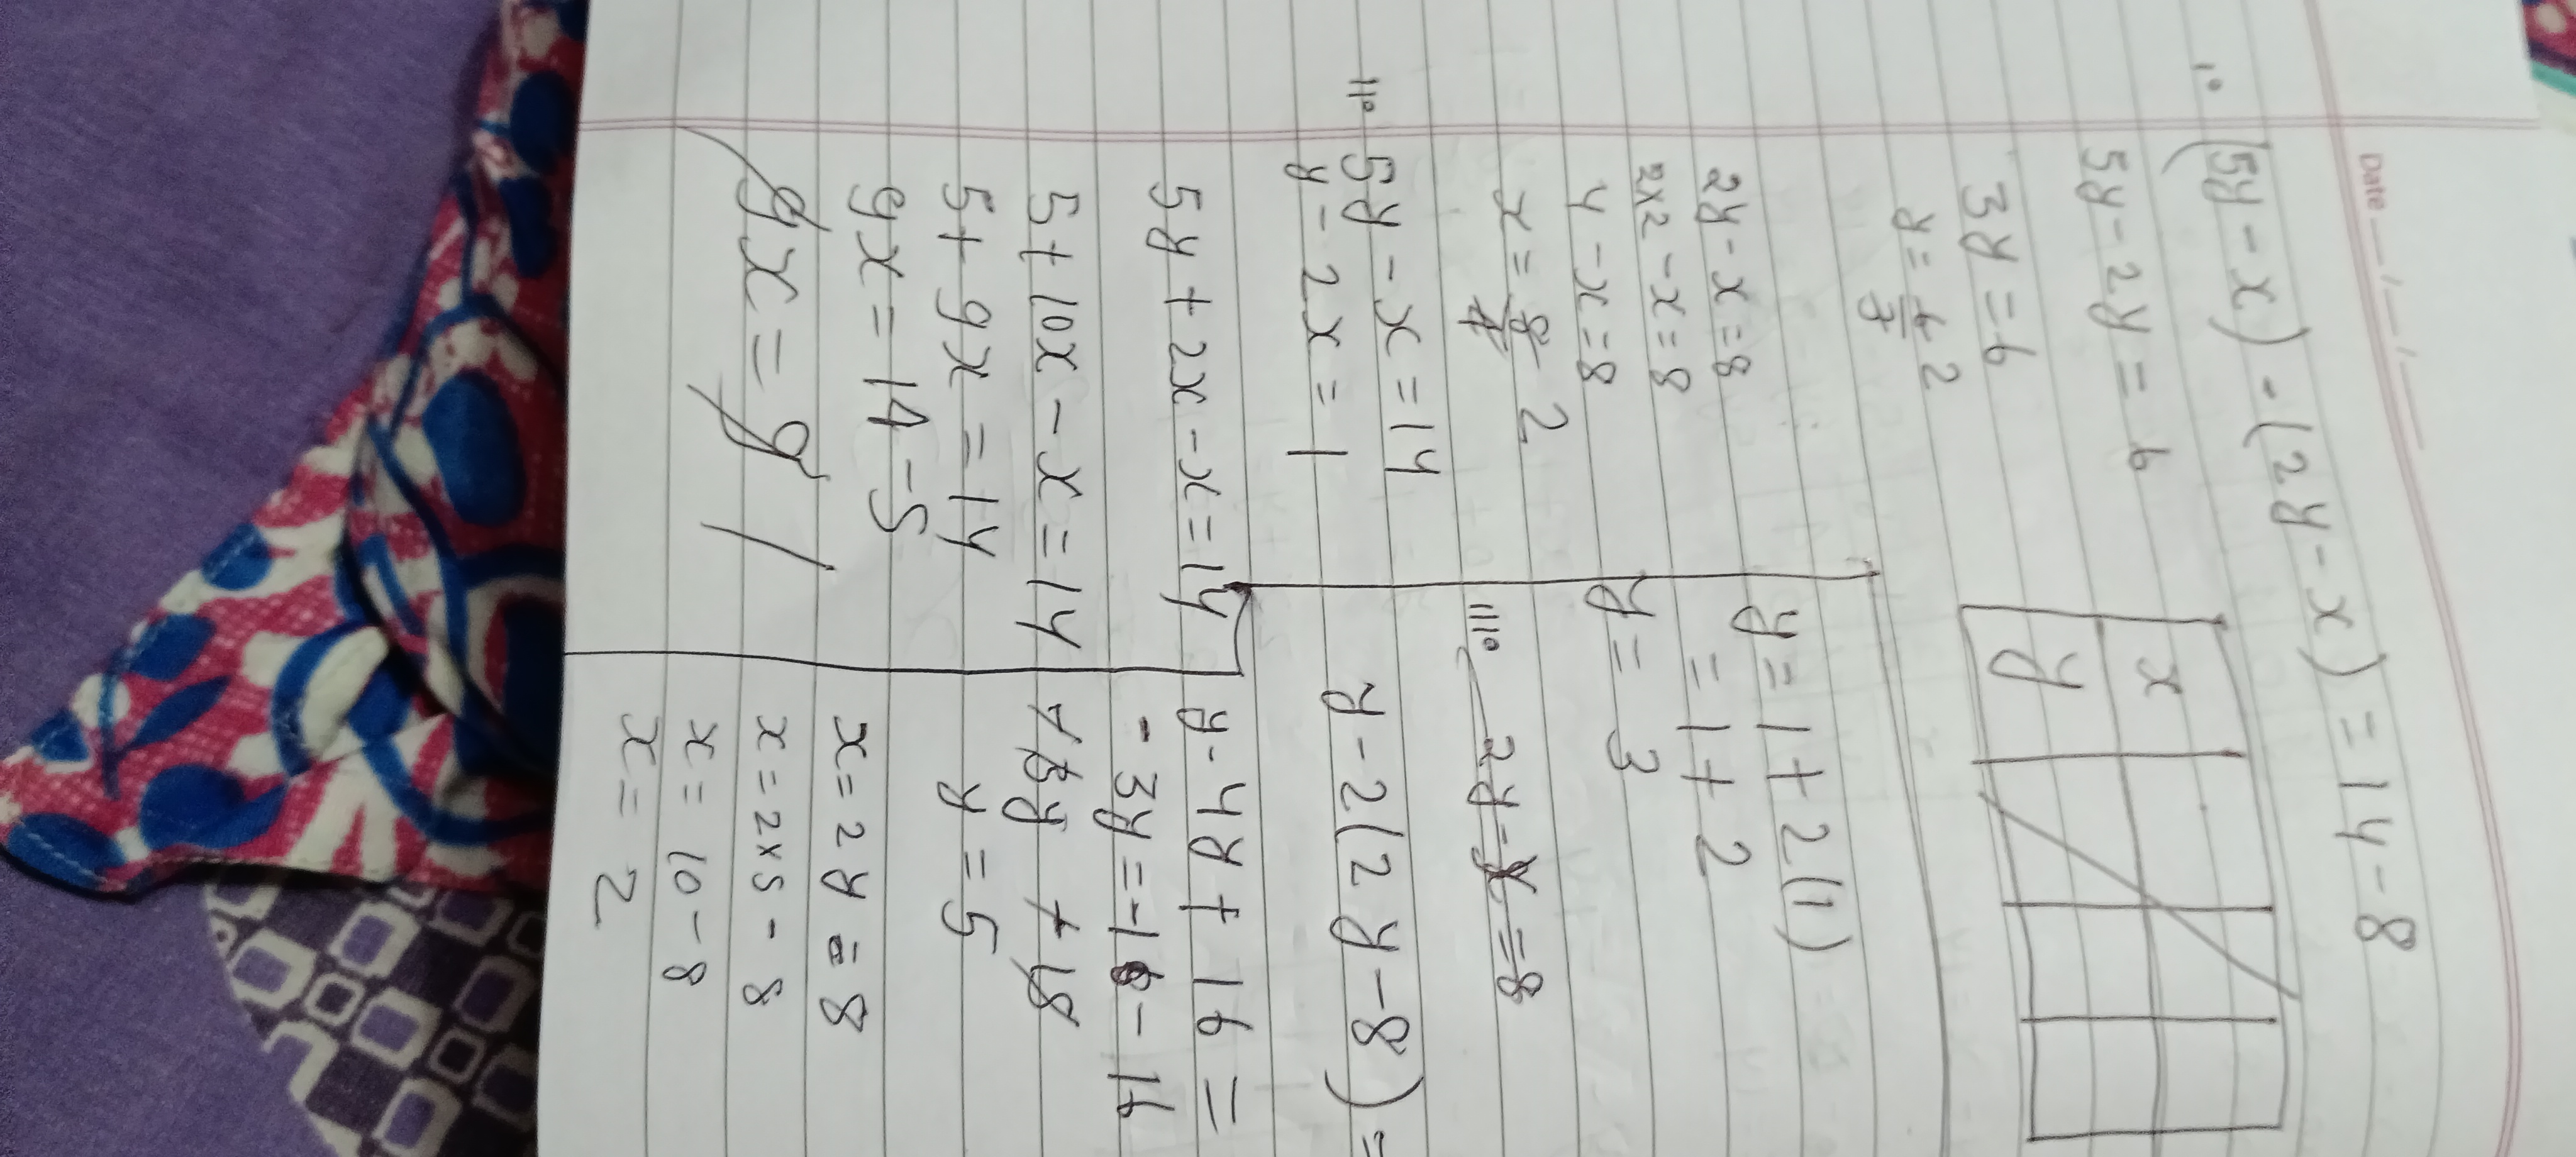 Date
i. (5y - x) - (2y - x) = 14 - 8
5y - 2y = 6
3y = 6
y = 6/3 2
x
y
2y - x = 8
2x2 - x = 8
4 - x = 8
x = 8/4 2
ii. 5y - x = 14
y - 2x = 1
5y + 2x - x = 14
5 + 10x - x = 14
5 + 9x = 14
9x = 14 - 5
9x = 9 1
y = 1 + 2(1)
= 1 + 2
y = 3
iii. 2y - x = 8
y - 2(2y - 8) =
y - 4y + 16 =
- 3y = -16 - 16
y = 5
x = 2y = 8
x = 2x5 - 8
x = 10 - 8
x = 2